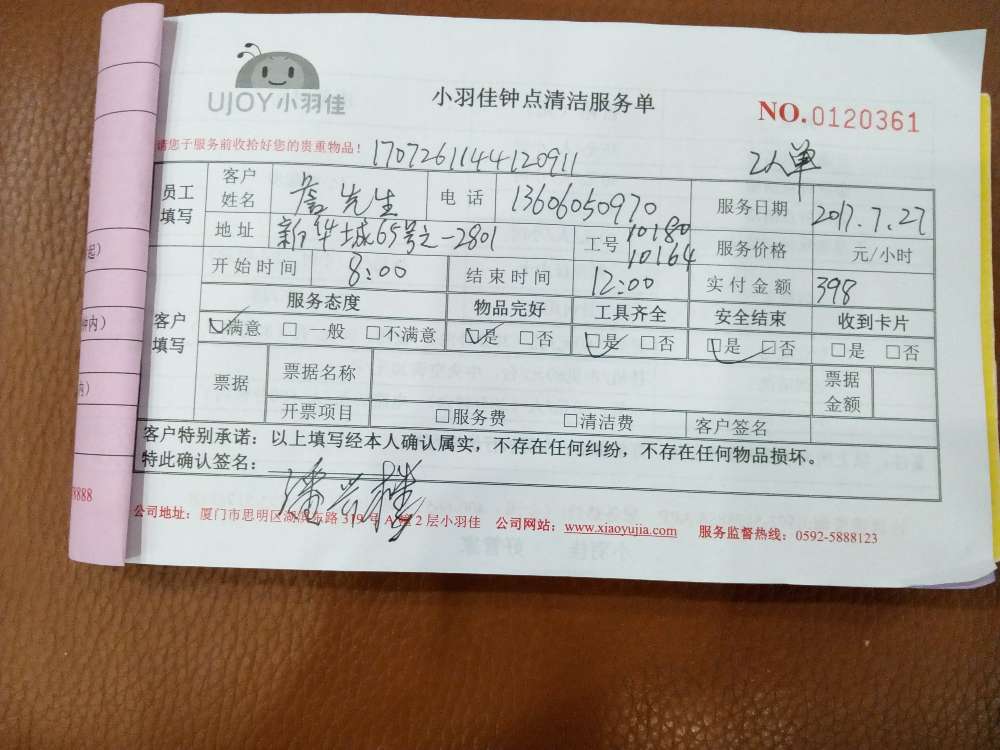 UJOY小羽佳
小羽佳钟点清洁服务单
NO.0120361
请您于服务前收拾好您的贵重物品！
1707261144120911
2人单
员工填写
客户姓名 詹先生 电话 13606050970 服务日期 2017.7.27
地址 新华城65号之一2801 工号 10180 10164 服务价格 元/小时
开始时间 8:00 结束时间 12:00 实付金额 398
客户填写
服务态度 物品完好 工具齐全 安全结束 收到卡片
☑满意 □一般 □不满意 ☑是 □否 ☑是 □否 ☑是 □否 □是 □否
票据 票据名称 票据金额
开票项目 □服务费 □清洁费 客户签名
客户特别承诺：以上填写经本人确认属实，不存在任何纠纷，不存在任何物品损坏。
特此确认签名：
公司地址：厦门市思明区湖滨东路319号A 2层小羽佳 公司网站：www.xiaoyujia.com 服务监督热线：0592-5888123
起）
钟内）
内）
8888